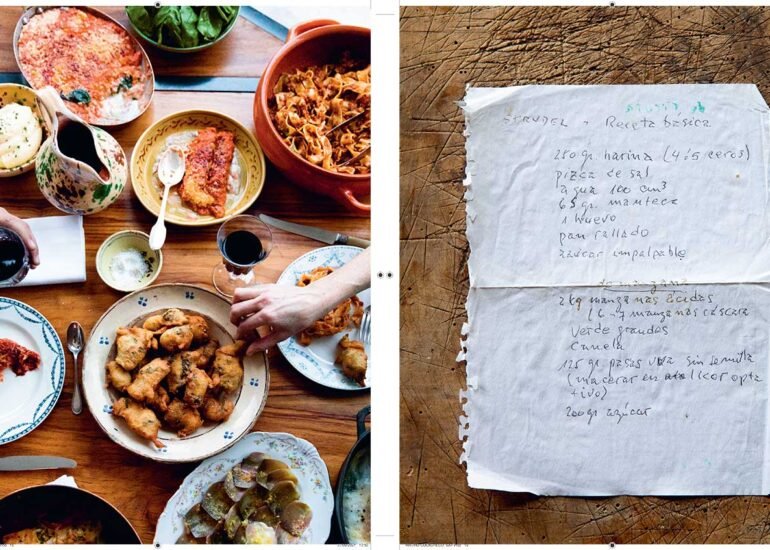 STRUDEL - Receta básica
250 gr. harina (4 ó 5 ceros)
pizca de sal
agua 100 cm³
65 gr. manteca
1 huevo
pan rallado
azúcar impalpable
de manzana
2 kg manzanas ácidas
(6-7 manzanas cáscara
verde grandes
canela
125 gr. pasas uva sin semilla
(macerar en licor opta
tivo)
200 gr azúcar